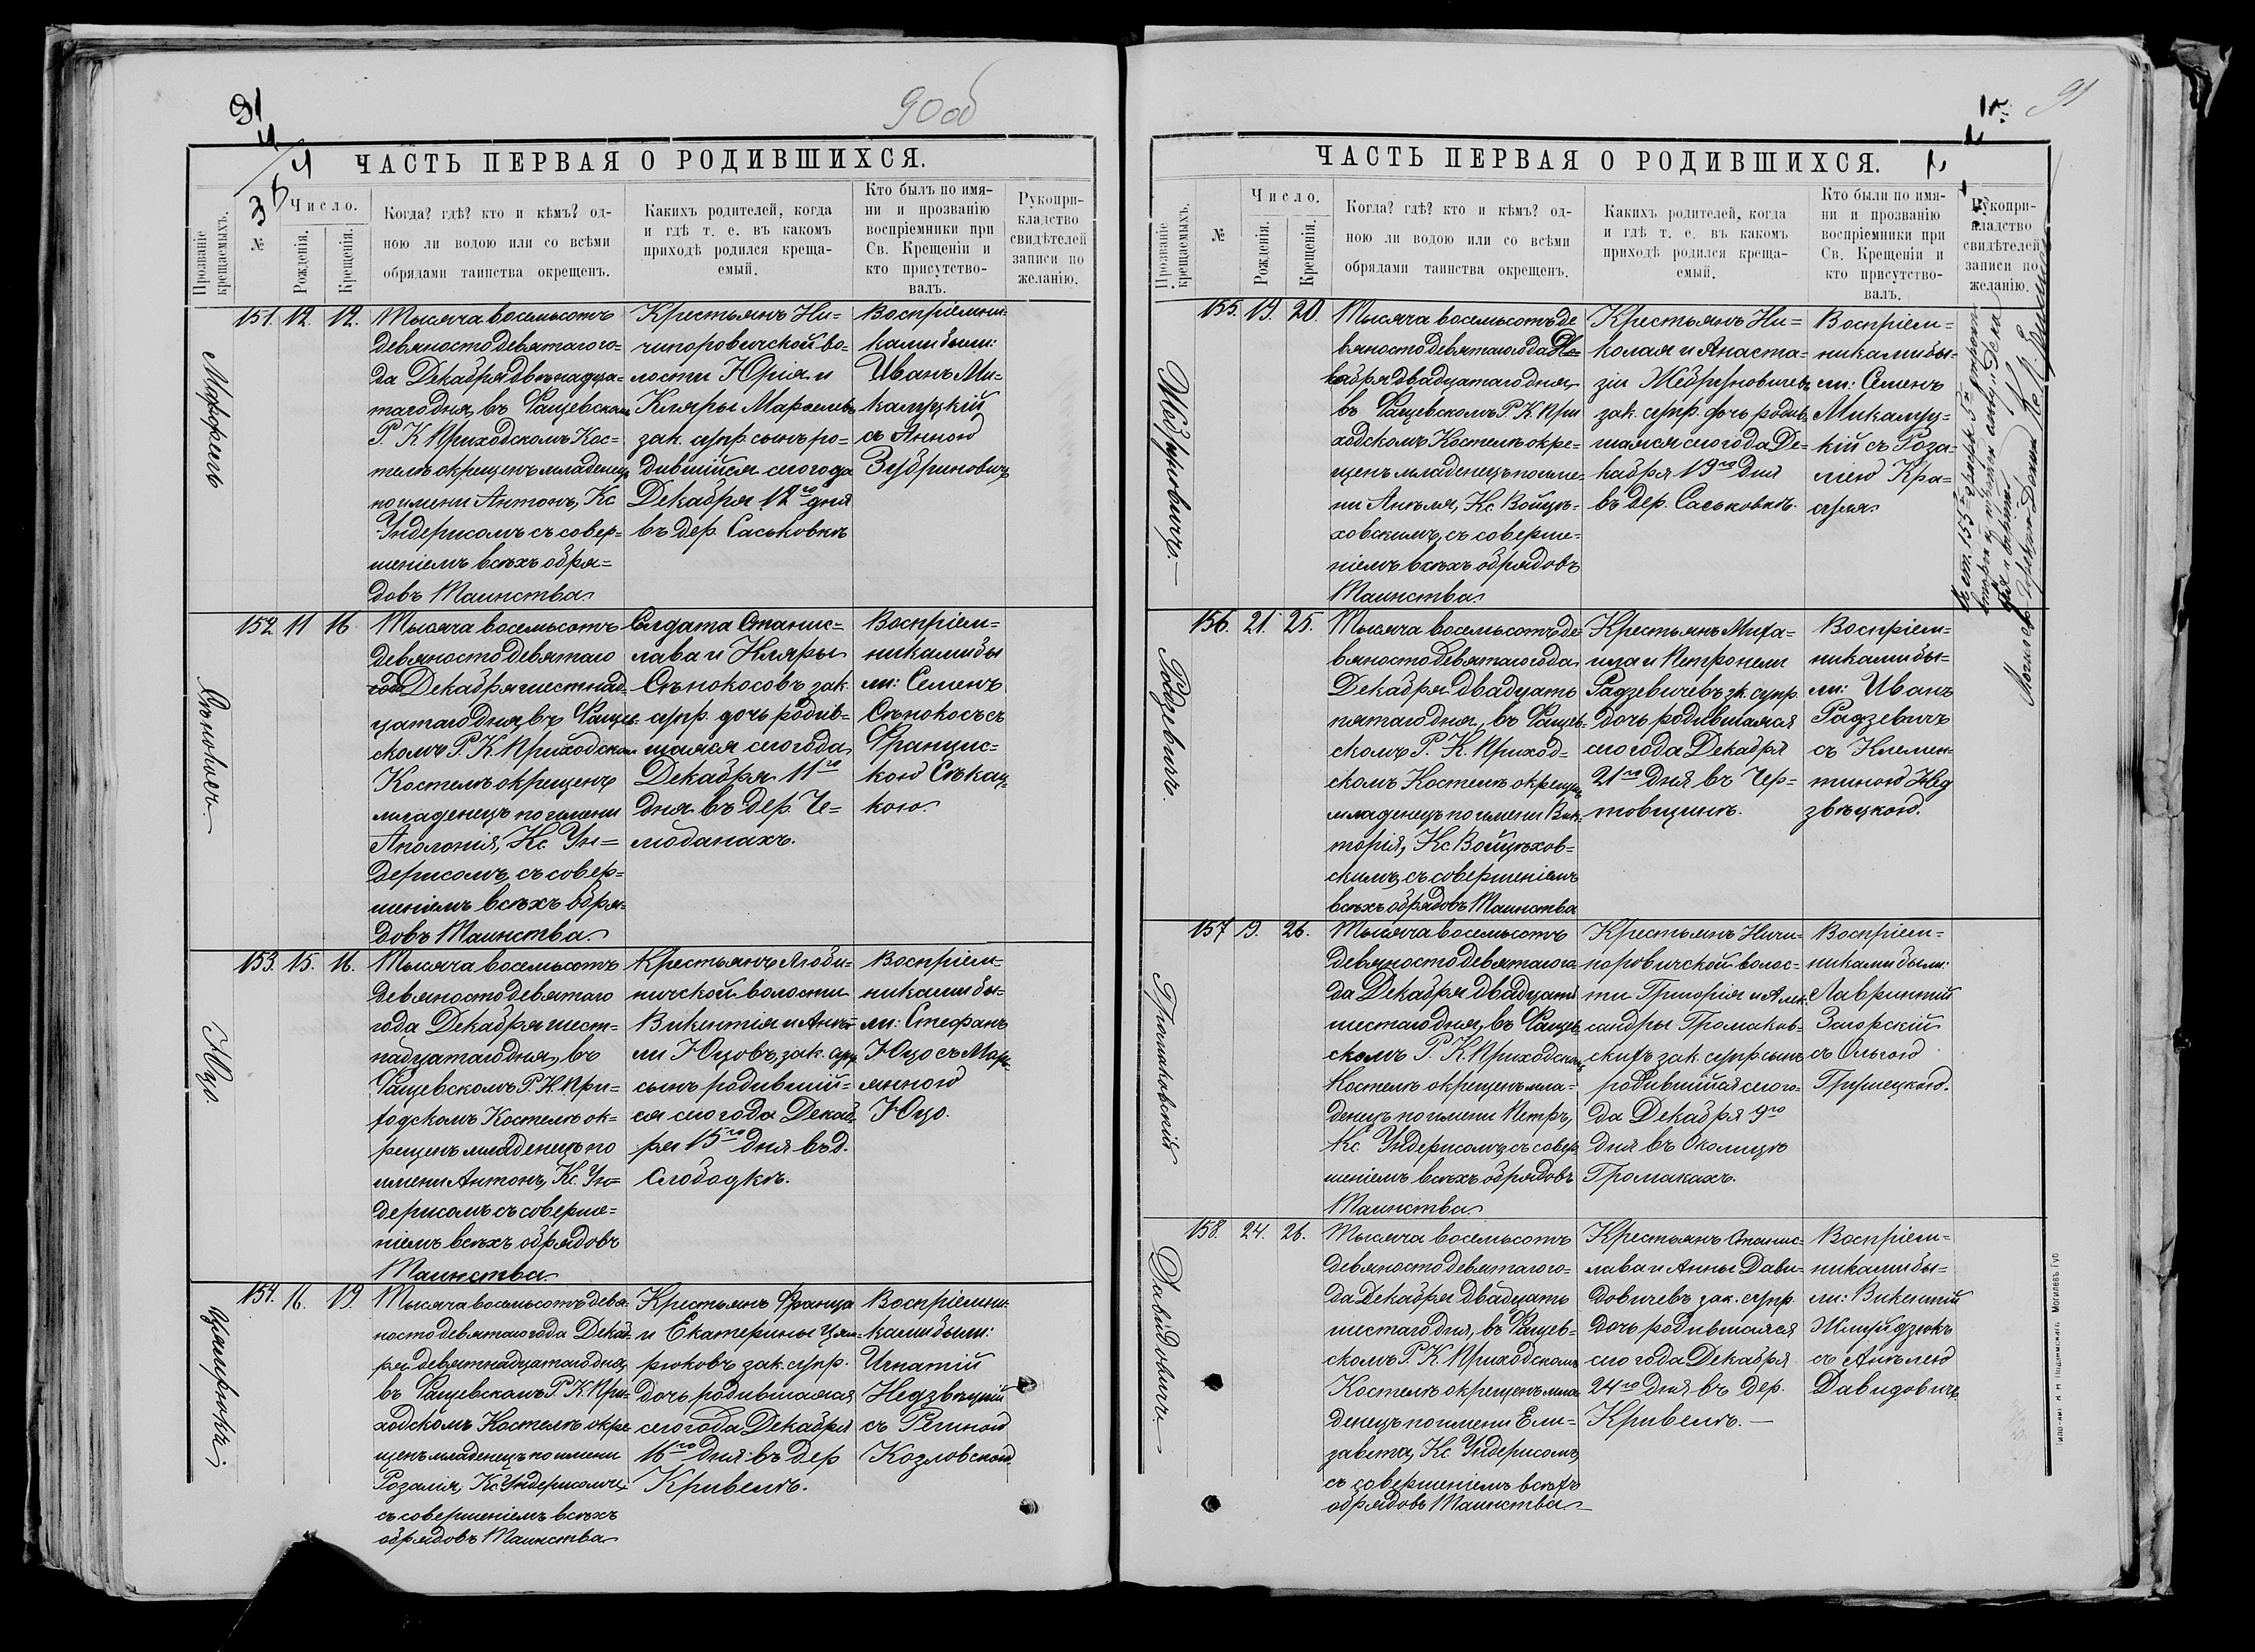 91
90 об
ЧАСТЬ ПЕРВАЯ О РОДИВШИХСЯ.
Прозваніе крещаемыхъ.
№
Число.
Рожденія.
Крещенія.
Когда? гдѣ? кто и кѣмъ? од-
ною ли водою или со всѣми
обрядами таинства окрещенъ.
Какихъ родителей, когда
и гдѣ т. е. въ какомъ
приходѣ родился креща-
емый.
Кто былъ по имя-
ни и прозванію
воспріемники при
Св. Крещеніи и
кто присутство-
валъ.
Рукопри-
кладство
свидѣтелей
записи по
желанію.
151. 12. 12.
Тысяча восемьсотъ
девяносто девятаго го-
да Декабря двѣнадца-
таго дня, въ Фащевскомъ
Р. К Приходскомъ Кос-
телѣ окрещенъ младенецъ
по имени Антонъ, Кс
Ундерисомъ съ совер-
шеніемъ всѣхъ обря-
довъ Таинства
Крестьянъ Ни-
чипоровичской во-
лости Юрія и
Кляры
зак. супр сынъ ро-
дившійся сего года
Декабря 12го дня
въ дер. Саськовкѣ
Воспріемни-
ками были:
Иванъ Ми-
калуцкій
съ Анною
Зубриновичъ
152 11 16
Сѣнокосъ.
Тысяча восемьсотъ
девяносто девятаго
года Декабря шестнад-
цатаго дня, въ Фащев-
скомъ Р. К. Приходскомъ
Костелѣ окрещенъ
младенецъ по имени
Аполонія, Кс. Ун-
дерисомъ, съ совер-
шеніемъ всѣхъ обря-
довъ Таинства.
Солдата Станис-
лава и Кляры
Сѣнокосовъ зак.
супр. дочь родив-
шаяся сего года
Декабря 11го
дня въ дер. Че-
моданахъ.
Воспріем-
никами бы
ли: Семенъ
Сѣнокосъ съ
Францис-
кою Сѣкац-
кою.
153. 15. 16.
Юцо.
Тысяча восемьсотъ
девяносто девятаго
года Декабря шест-
надцатаго дня, въ
Фащевскомъ Р. К. При-
ходскомъ Костелѣ ок-
рещенъ младенецъ по
имени Антонъ, Кс. Ун-
дерисомъ съ соверше-
ніемъ всѣхъ обрядовъ
Таинства
Крестьянъ Люби-
ничской волости
Викентія и Анѣ-
ли Юцовъ, зак. супр
сынъ родившій-
ся сего года Декаб-
ря 15го дня въ д.
Слободкѣ.
Воспріем-
никами бы-
ли: Стефанъ
Юцо съ Мар-
янною
Юцо.
154. 16. 19.
Тысяча восемьсотъ девя-
носто девятаго года Декаб-
ря девятнадцатаго дня,
въ Фащевскомъ Р. К. При-
ходскомъ Костелѣ окре-
щенъ младенецъ по имени
Розалія, Кс. Ундерисомъ,
съ совершеніемъ всѣхъ
обрядовъ Таинства
Крестьянъ Франца
и Екатерины
зак. супр.
дочь родившаяся
сего года Декабря
16го дня въ дер
Кривелѣ.
Воспріемни-
ками были:
Игнатій
Недзвѣцкій
съ Региною
Козловскою
91
ЧАСТЬ ПЕРВАЯ О РОДИВШИХСЯ.
Прозваніе крещаемыхъ.
№
Число.
Рожденія.
Крещенія.
Когда? гдѣ? кто и кѣмъ? од-
ною ли водою или со всѣми
обрядами таинства окрещенъ.
Какихъ родителей, когда
и гдѣ т. е. въ какомъ
приходѣ родился креща-
емый.
Кто были по имя-
ни и прозванію
воспріемники при
Св. Крещеніи и
кто присутство-
валъ.
Рукопри-
кладство
свидѣтелей
записи по
желанію.
155. 19. 20.
Тысяча восемьсотъ де
вяносто девятаго года Де-
кабря двадцатаго дня,
въ Фащевскомъ Р. К. При
ходскомъ Костелѣ окре-
щенъ младенецъ по име-
ни Анѣля, Кс. Войцѣ-
ховскимъ, съ соверше-
ніемъ всѣхъ обрядовъ
Таинства.
Крестьянъ Ни-
колая и Анаста-
зіи
зак. супр. дочь родив-
шаяся сего года Де-
кабря 19го дня
въ дер. Саськовкѣ.
Воспріем-
никами бы-
ли: Семенъ
Микалуц-
кій съ Роза-
ліею
156. 21. 25.
Радзевичъ.
Тысяча восемьсотъ де-
вяносто девятаго года
Декабря двадцать
пятаго дня, въ Фащев-
скомъ Р. К. Приход-
скомъ Костелѣ окрещенъ
младенецъ по имени Вик-
торія, Кс. Войцѣхов-
скимъ, съ совершеніемъ
всѣхъ обрядовъ Таинства
Крестьянъ Миха-
ила и Петронели
Радзевичевъ зк. супр.
дочь родившаяся
сего года Декабря
21го дня въ Чер-
товщинѣ.
Воспріем-
никами бы-
ли: Иванъ
Радзевичъ
съ Клемен-
тиною Нед
звѣцкою.
157 9. 26.
Громаковскій
Тысяча восемьсотъ
девяносто девятаго го
да Декабря двадцать
шестаго дня, въ Фащев-
скомъ Р. К. Приходскомъ
Костелѣ окрещенъ мла-
денецъ по имени Петръ,
Кс. Ундерисомъ, съ совер-
шеніемъ всѣхъ обрядовъ
Таинства
Крестьянъ Ничи-
поровичской волос-
ти Григорія и Алек-
сандры Громаков-
скихъ зак. супр сынъ
родившійся сего го-
да Декабря 9го
дня въ Околицѣ
Громакахъ.
Воспріем-
никами были:
Лаврентій
Загорскій
съ Ольгою
Грушецкою.
158. 24. 26.
Давидовичъ.
Тысяча восемьсотъ
девяносто девятаго го-
да Декабря двадцать
шестаго дня, въ Фащев-
скомъ Р. К. Приходскомъ
Костелѣ окрещенъ мла
денецъ по имени Ели-
завета, Кс. Ундерисомъ,
съ совершеніемъ всѣхъ
обрядовъ Таинства
Крестьянъ Станис-
лава и Анны Дави-
довичевъ зак. супр.
дочь родившаяся
сего года Декабря
24го дня въ дер.
Кривелѣ.
Воспріем-
никами бы-
ли: Викентій
Жмуйдзюкъ
съ Анѣлею
Давидовичъ